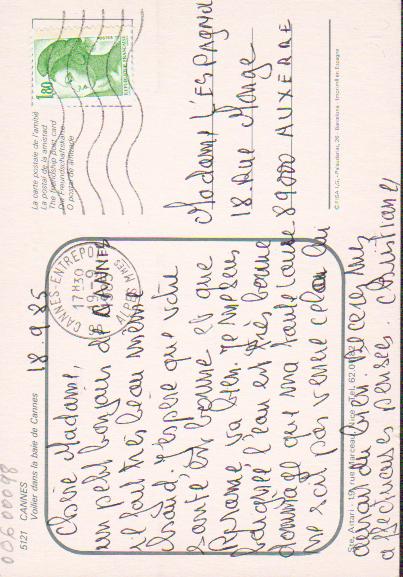 00600098
5121 CANNES
Voilier dans la baie de Cannes
18.9.85
Chère Madame,
un petit bonjour de CANNES
il fait très beau même
chaud. J'espère que votre
santé est bonne et que
va bien. Je me suis
baignée l'eau est très bonne
dommage que ma tante Laure
ne soit pas venue cela lui
aurait du bien. Recevez mes
affectueuses pensées. Christiane
CANNES-ENTREPOT
17H30
19-9
1985
ALPES MMES
La carte postale de l'amitié
La postal de la amistad
The friendship post card
Die Freundschaftskarte
O postal de amizade
1,80
POSTES
REPUBLIQUE FRANÇAISE
Madame L'ESPAGNOL
18 Rue Monge
89000 AUXERRE
Ste. Astari - 19, rue Marceau Nice - Tel. 62.09.82
© FISA I.G. - Palaudarias, 26 - Barcelona - Imprimé en Espagne